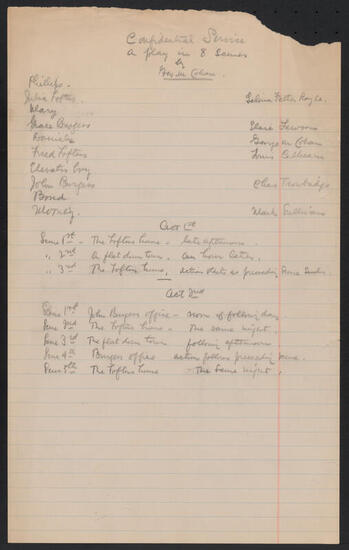 Confidential Service
A play in 8 scenes
by
Geo. M. Cohan.
Phillips.
Julia Loftus. Selena Fetter Royle.
Mary
Grace Burgess Clara
Daniels George M Cohan
Fred Loftus Louis
Elevator boy
John Burgess Chas Trowbridge
Bond
Mark Sullivan
Act 1st
Scene 1st - The Loftus home - late afternoon.
" 2nd A flat down town, an hour later.
" 3rd The Loftus home, action starts as preceding scene
Act 2nd
Scene 1st John Burgess office - noon of following day
Scene 2nd The Loftus home - The same night.
Scene 3rd The flat down town following afternoon
Scene 4th Burgess office action follows preceding scene.
Scene 5th The Loftus home - The same night.